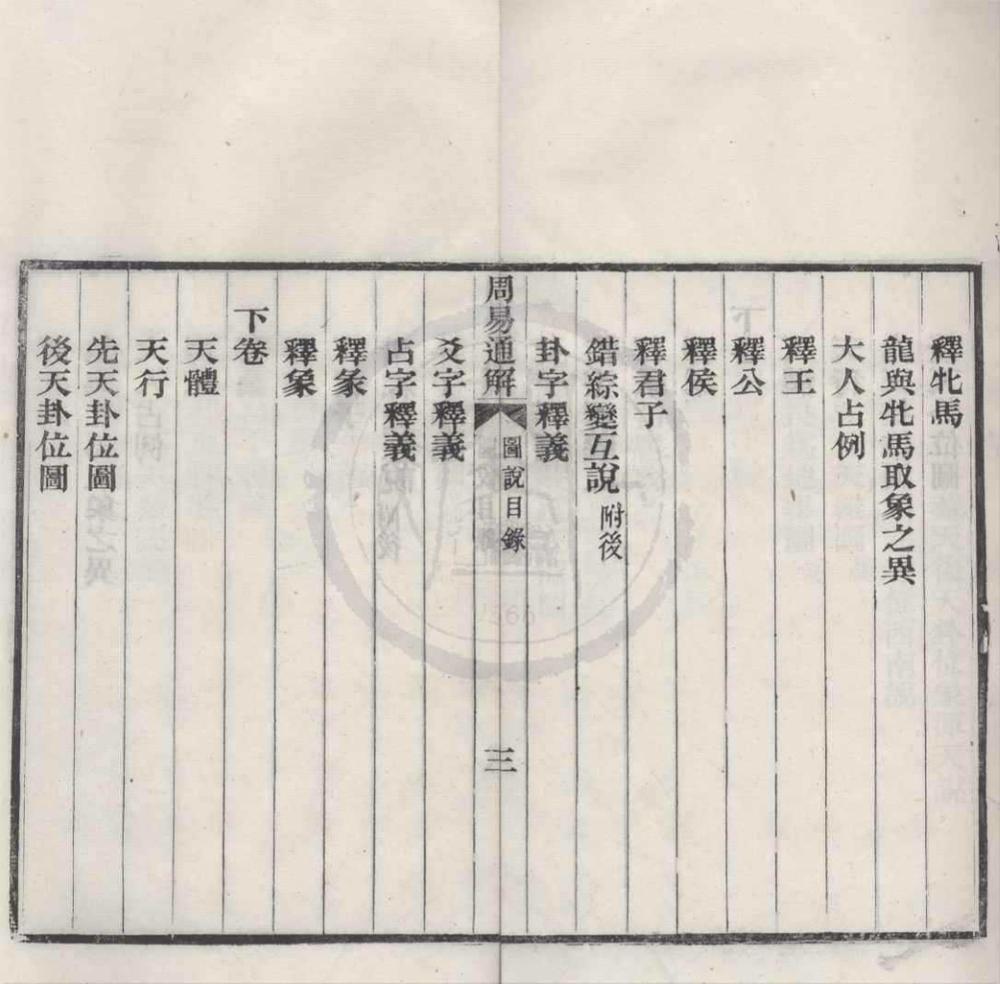 釋牝馬
龍與牝馬取象之異
大人占例
釋王
釋公
釋侯
釋君子
錯綜變互說 附後
卦字釋義
周易通解 圖說目錄 三
爻字釋義
占字釋義
釋彖
釋象
下卷
天體
天行
先天卦位圖
後天卦位圖